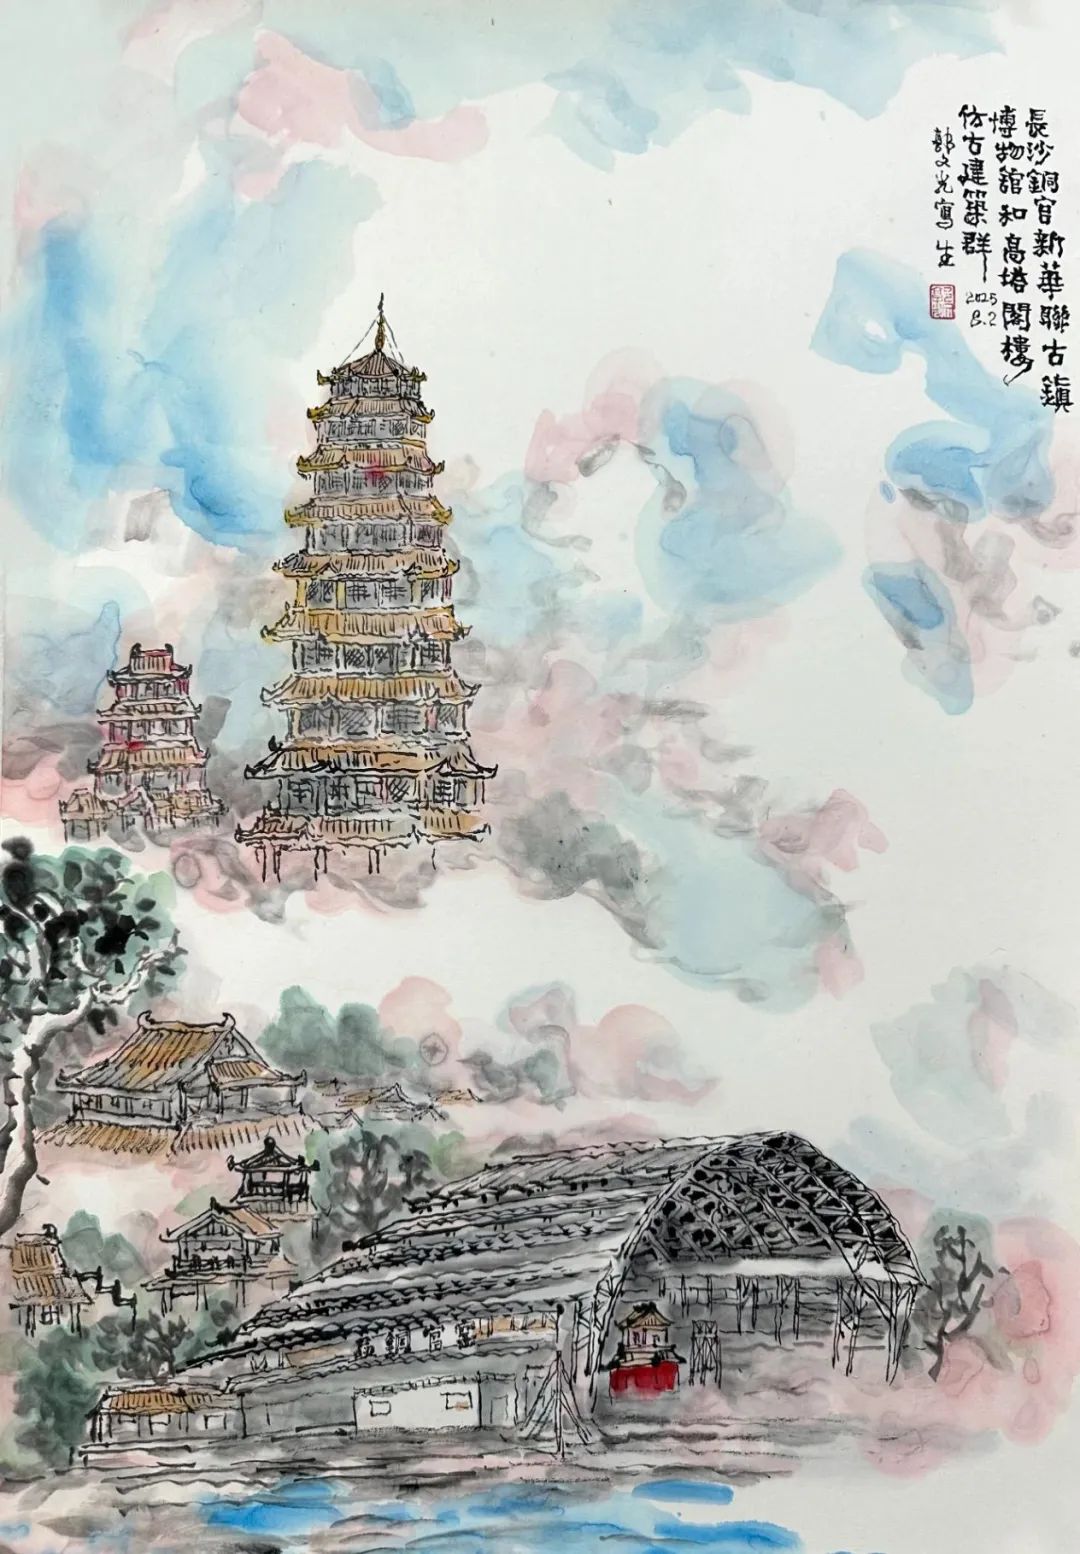 長沙銅官新華聯古鎮
博物舘和高塔閣樓
仿古建築群
2025
8.2
郭文光寫生
銅官窑